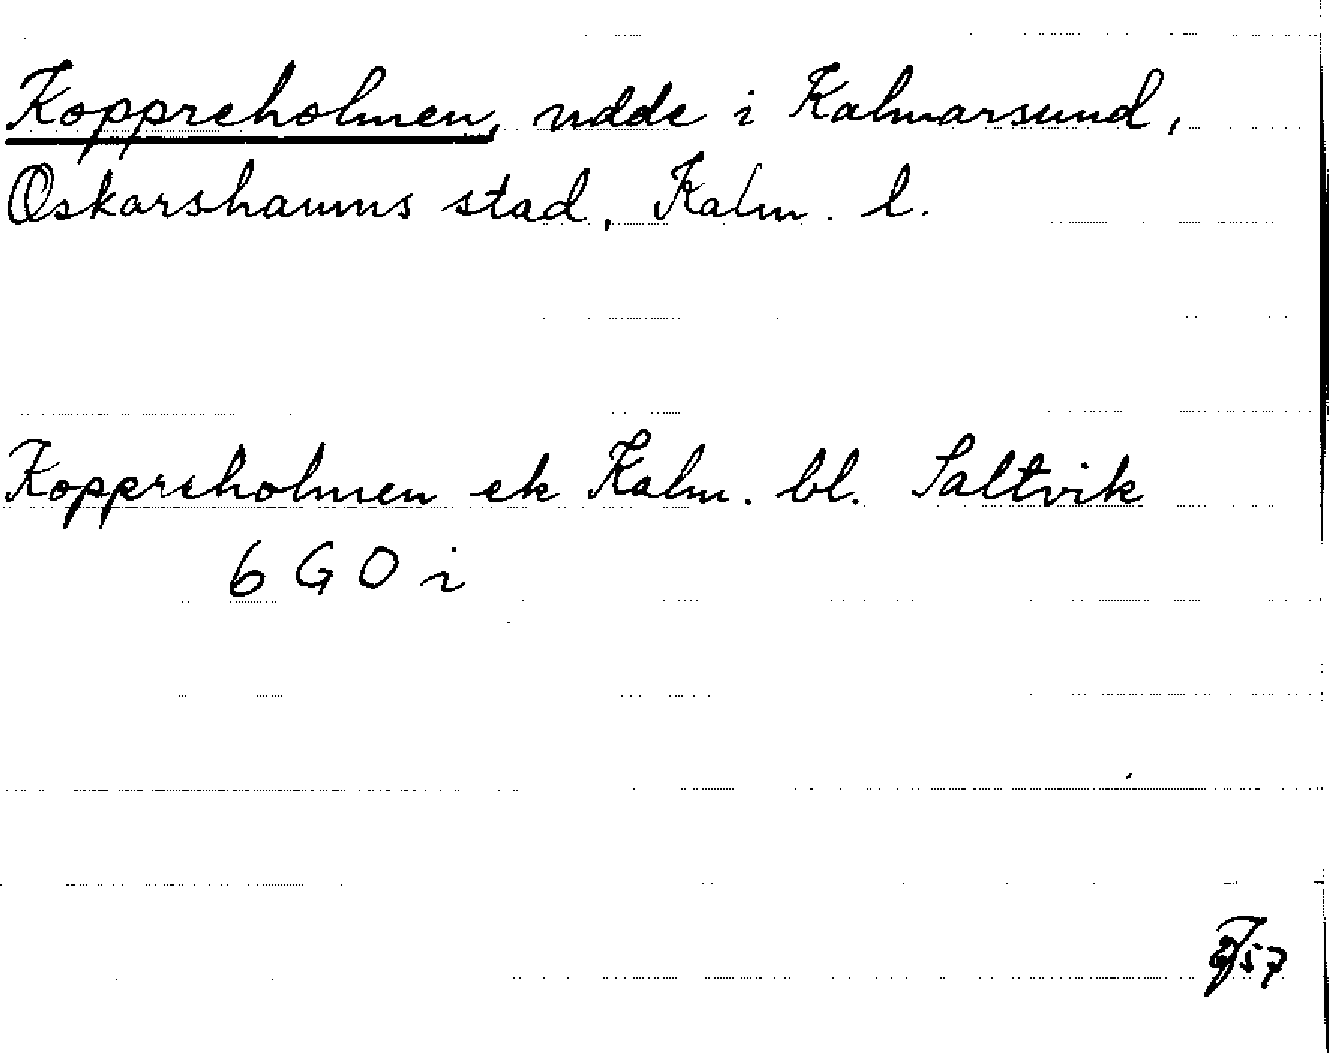 Koppreholmen, udde i Kalmarsund,
Oskarshamns stad, Kalm. l.
Koppreholmen ek Kalm. bl. Saltvik
6 G O i